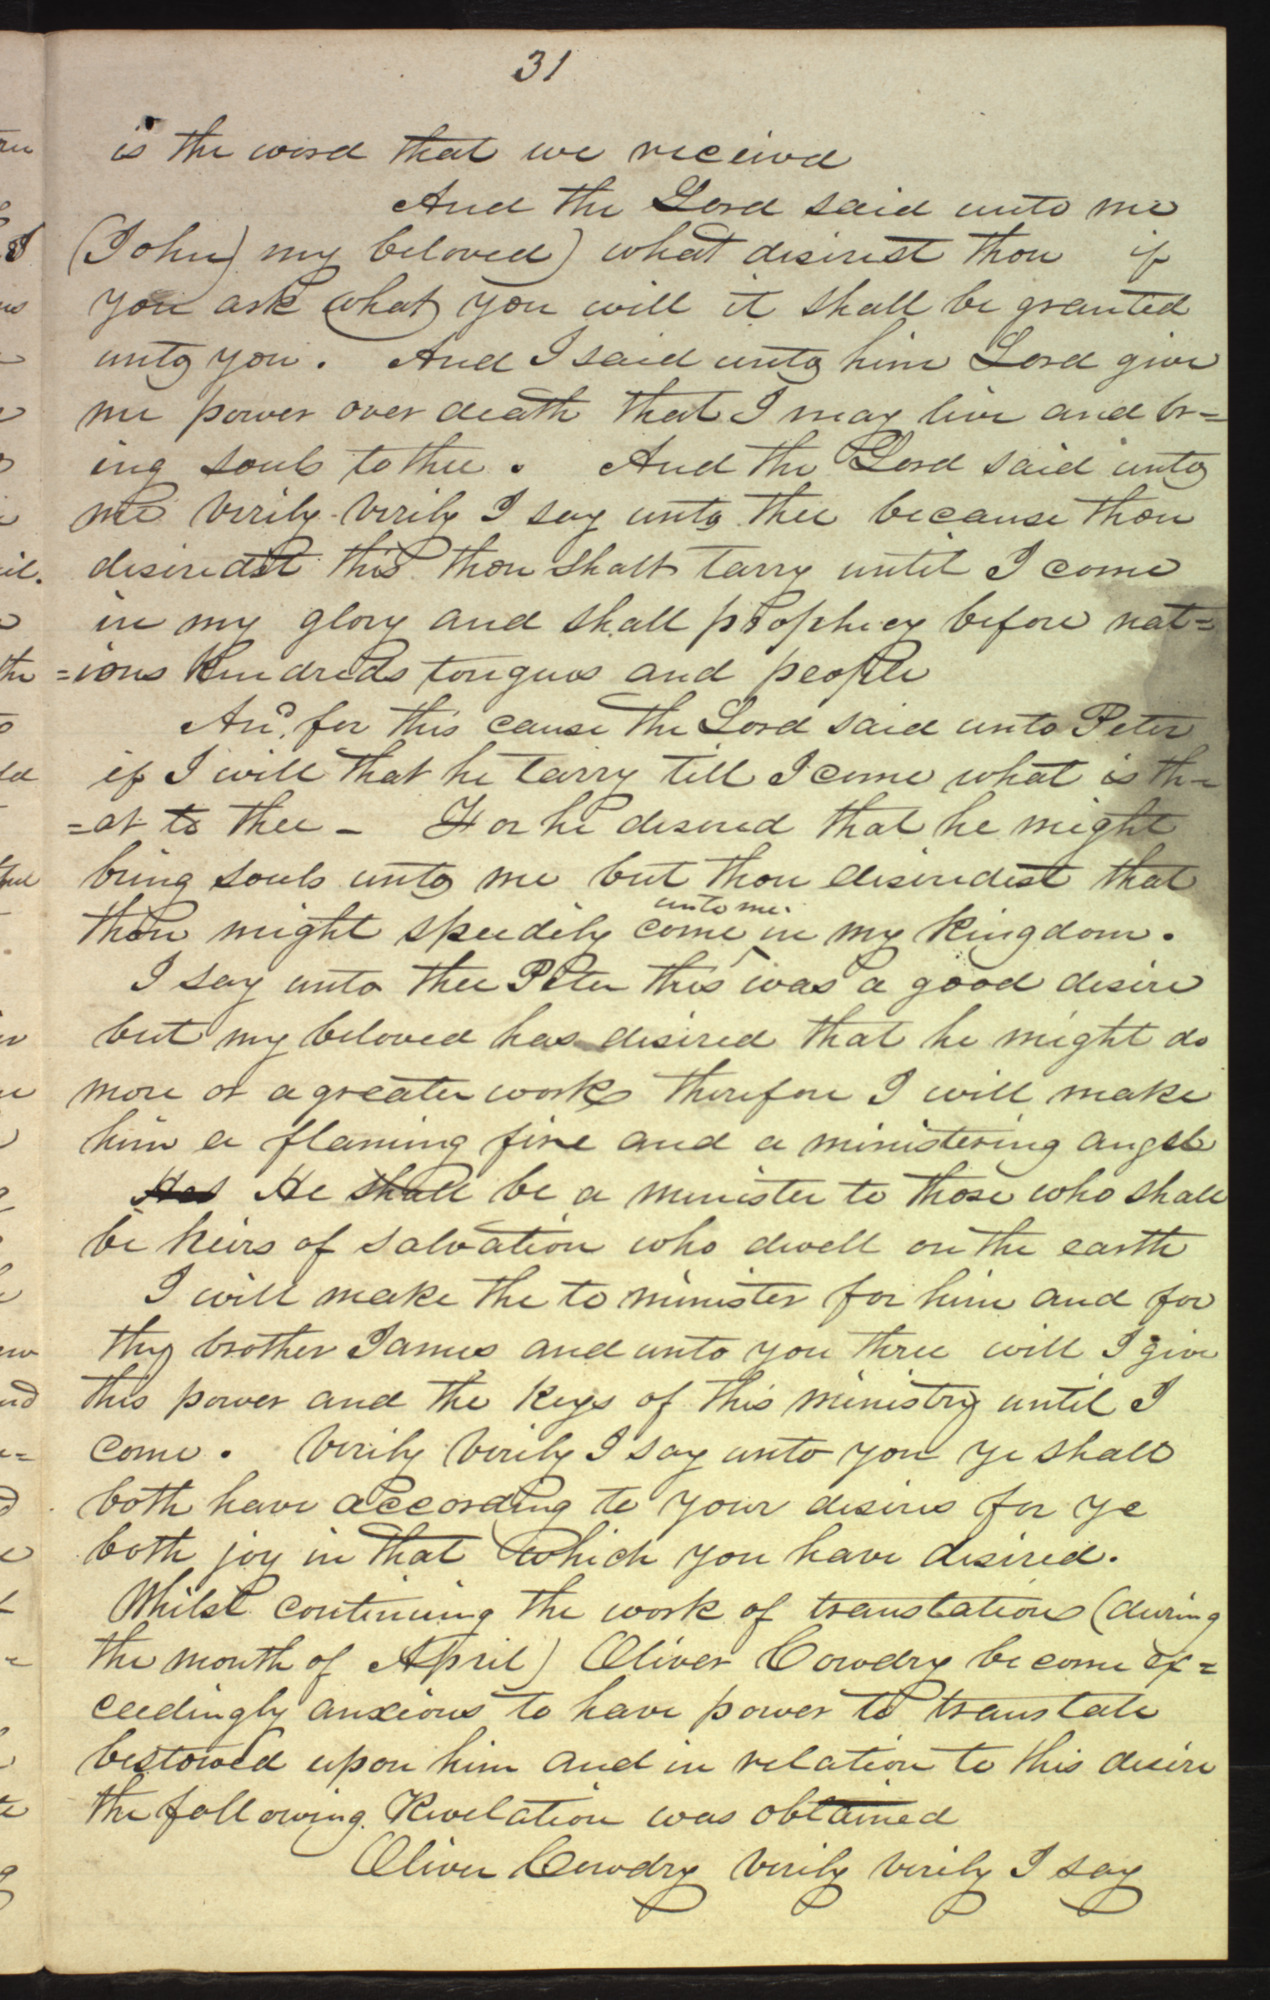 31
is the word that we receivd
And the Lord said unto me
(John) my beloved) what desirest thou if
you ask what you will it shall be granted
unto you. And I said unto him Lord give
me power over death that I may live and br=
ing souls to thee. And the Lord said unto
me verily verily I say unto thee because thou
desiredst this thou shalt tarry until I come
in my glory and shall prophicy before nat=
=ions Kindreds tongues and people
And for this cause the Lord said unto Peter
if I will that he tarry till I come what is th-
=at to thee - For he desired that he might
bring souls unto me but thou desiredest that
thou might speedily come unto me in my Kingdom.
I say unto thee Peter this was a good desire
but my beloved has desired that he might do
more or a greater work therefore I will make
him a flaming fire and a ministering angel
He shall be a minister to those who shall
be heirs of salvation who dwell on the earth
I will make the to minister for him and for
thy brother James and unto you three will I give
this power and the keys of this ministry until I
come. Verily Verily I say unto you ye shall
both have according to your desires for ye
both joy in that which you have desired.
Whilst continuing the work of translation (during
the month of April) Oliver Cowdry become ex=
ceedingly anxious to have power to translate
bestowed upon him and in relation to this desire
the following Revelation was obtained
Oliver Cowdry verily verily I say